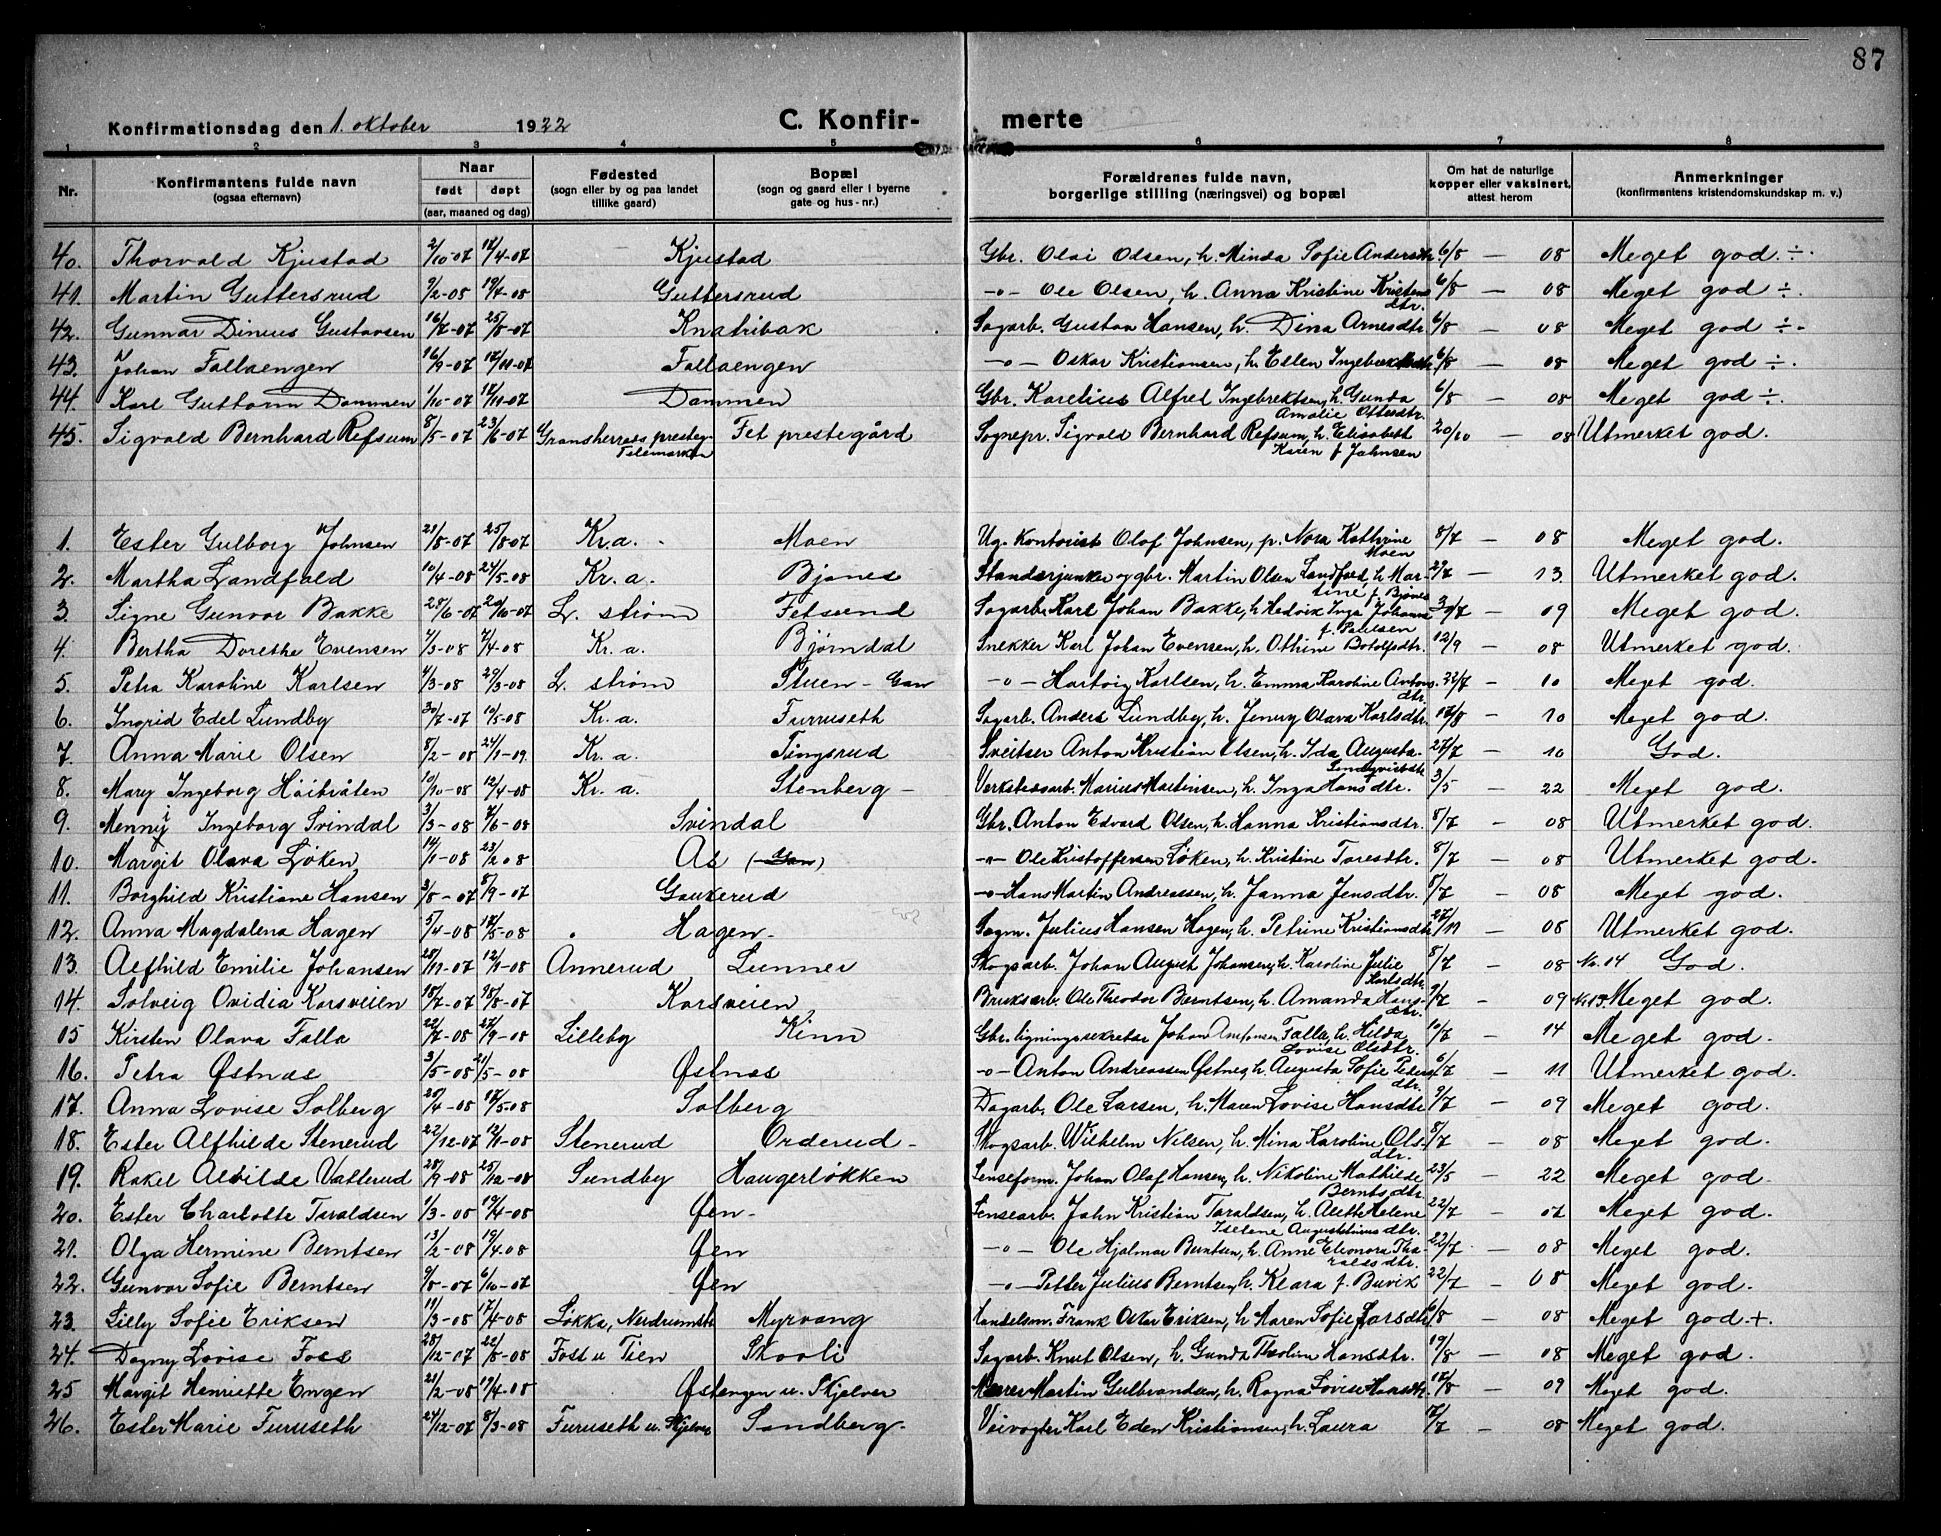 87
Konfirmationsdag den 1. oktober 1922 C. Konfirmerte
1 2 3 4 5 6 7 8
Nr. Konfirmantens fulde navn (ogsaa efternavn) Naar født døpt (aar, maaned og dag) Fødested (sogn eller by og paa landet tillike gaard) Bopæl (sogn og gaard eller i byerne gate og hus-nr.) Forældrenes fulde navn, borgerlige stilling (næringsvei) og bopæl Om hat de naturlige kopper eller vaksinert, attest herom Anmerkninger (konfirmantens kristendomskundskap m. v.)
40. Thorvald Kjustad 2/10-07 Kjustad Gbr. Olai Olsen, h. Minda Sofie Andersdtr. 6/8 — 08 Meget god. ÷.
41. Martin Guttersrud 9/2-08 19/4-08 Guttersrud -o- Ole Olsen, h. Anna Kristine Kristensdtr. 6/8 — 08 Meget god ÷.
42. Gunnar Dinius Gustavsen 16/7-07 25/8-07 Knatribak Sagarb. Gustav Hansen, h. Dina Arnesdtr. 6/8 — 08 Meget god ÷.
43. Johan Fallaengen 16/9-07 Fallaengen -o- Oskar Kristiansen, h. Ellen 6/8 — 08 Meget god ÷.
44. Karl Guttorm Dammen 1/10-07 Dammen Gbr. Karelius Alfred Ingebrektsen, h. Gunda Amalie Ottesdtr. 6/8 — 08 Meget god ÷.
45. Sigvald Bernhard Refsum 8/5-07 23/6-07 Gransherrads presteg. Telemarken Fet prestegård Sognepr. Sigvald Bernhard Refsum, h. Elisabeth Karen f Johnsen 20/10 — 08 Utmerket god.
1. Ester Gulborg Johnsen 21/8-07 25/8-07 Kr.a. Moen Ug. Kontorist Olaf Johnsen, p. Nora Kathrine Moen 8/7 — 08 Meget god.
2. Martha Landfald 10/4-08 24/5-08 Kr.a. Bjanes Standarjunker og gbr. Martin Olsen Landfald, h. Martine f. Bjønes 27/7 — 13 Utmerket god.
3. Signe Gunvor Bakke 28/6-07 20/10-07 L. strøm Fetsund Sagarb. Karl Johan Bakke, h. Hedvik Inga Johanne f. Paulsen 30/7 — 09 Meget god.
4. Bertha Dorethe Evensen 4/3-08 7/4-08 Kr.a. Bjørndal Snekker Karl Johan Evensen, h. Othine Botolfsdtr. 12/9 — 08 Utmerket god.
5. Petra Karoline Karlsen 4/3-08 29/3-08 L. strøm Stuen - Gan -o- Hartvig Karlsen, h. Emma Karoline Antonsdtr. 22/7 — 10 Meget god.
6. Ingrid Edel Lundby 30/7-07 10/5-08 Kr.a. Furruseth Sagarb. Anders Lundby, h. Jenny Olava Karlsdtr. 17/8 — 10 Meget god.
7. Anna Marie Olsen 8/2-08 24/1-09. Kr.a. Tingsrud Sveitser Anton Kristian Olsen, h. Ida Augusta 27/7 — 10 God.
8. Mary Ingeborg Høibråten 10/10-08 12/4-08 Kr.a. Stenberg - Verkstedsarb. Marius Martinsen, h. Inga Hansdtr. 3/5 — 22 Meget god.
9. Menny Ingeborg Svindal 3/3-08 7/6-08 Svindal Gbr. Anton Edvard Olsen, h. Hanna Kristiansdtr. 8/7 — 08 Utmerket god.
10. Margit Olava Løken 14/1-08 23/2 08 As (Gan) -o- Ole Kristoffersen Løken, h. Kristine Taresdtr. 8/7 — 08 Utmerket god.
11. Borghild Kristiane Hansen 3/8-07 8/9-07 Gauterud -o- Hans Martin Andreassen, h. Janna Jensdtr. 8/7 — 08 Meget god.
12. Anna Magdalena Hagen 5/4-08 17/5-08 Hagen - Sagm. Julius Hansen Hagen, h. Petrine Kristiansdtr. 27/11 — 08 Utmerket god.
13. Alfhild Emilie Johansen 28/11-07 12/1-08 Annerud Lunner Skogsarb. Johan August Johansen, h. Karoline Julie Karlsdtr. 8/7 — 08 No. 14 God.
14. Solveig Ovidia Korsveien 18/7-07 18/8-07 Korsveien Bruksarb. Ole Theodor Berntsen, h. Amanda Hansdtr. 9/7 - 09 No. 13. Meget god.
15 Kirsten Olava Falla 22/7-08 27/9-08 Lilleby Kinn Gbr. ligningssekretær Johan Falla, h. Hilda Lovise Olsdtr. 10/7 — 14 Meget god.
16. Petra Østnæs 3/5-08 21/5-08 Østnæs -o- Anton Andreassen Østnes, h. Augusta Sofie Pedersdtr. 6/7 — 11 Utmerket god.
17. Anna Lovise Solberg 20/4-08 17/5-08 Solberg Dagarb. Ole Larsen, h. Maren Lovise Hansdtr. 9/7 — 09 Meget god.
18. Ester Alfhilde Stenerud 22/12-07 12/1-08 Stenerud Orderud - Skogsarb. Wilhelm Nilsen, h. Mina Karoline Olsdtr. 8/7 — 08 Meget god.
19. Rakel Alvilde Vallerud 28/9-08 25/12-08 Sundby Haugerløkken Lenseform. Johan Olaf Hansen, h. Nikoline Mathilde Berntsdtr. 23/5 — 22 Meget god.
20. Ester Charlotte Taraldsen 1/3-08 19/4-08 Øen - Lensearb. John Kristian Taraldsen, h. Alette Helene Iselene Augustiniusdtr. 22/7 — 07 Meget god.
21. Olga Hermine Berntsen 13/2-08 19/4.08 Øen -o- Ole Hjalmar Berntsen, h. Anne Eleonora Tharaldsdtr. 22/7 — 08 Meget god.
22. Gunvor Sofie Berntsen 9/8-07 6/10-07 Øen -o- Petter Julius Berntsen, h. Klara f. Buvik 22/7 — 08 Meget god.
23. Lilly Sofie Eriksen 11/3-08 17/4-08 Løkka, Nerdrumsth Myrvang Handelsm. Frank Oskar Eriksen, h. Maren Sofie Larsdtr. 6/8 — 08 Meget god +.
24. Dagny Lovise Foss 28/12-07 22/8-08 Foss u Tien Skovli Sagarb. Knut Olsen, h. Gunda Theoline Hansdtr. 19/8 — 08 Meget god.
25 Margit Henriette Engen 21/2-08 19/4-08 Østengen u. Skjelver Murer Martin Gulbrandsen, h. Ragna Lovise Hansdtr. 17/8 — 09 Meget god.
26. Ester Marie Furuseth 24/12-07 8/3-08 Furuseth u. Skjelver Sandberg. Veivogter Karl Eden Kristiansen, h. Laura 17/7 — 08 Meget god.